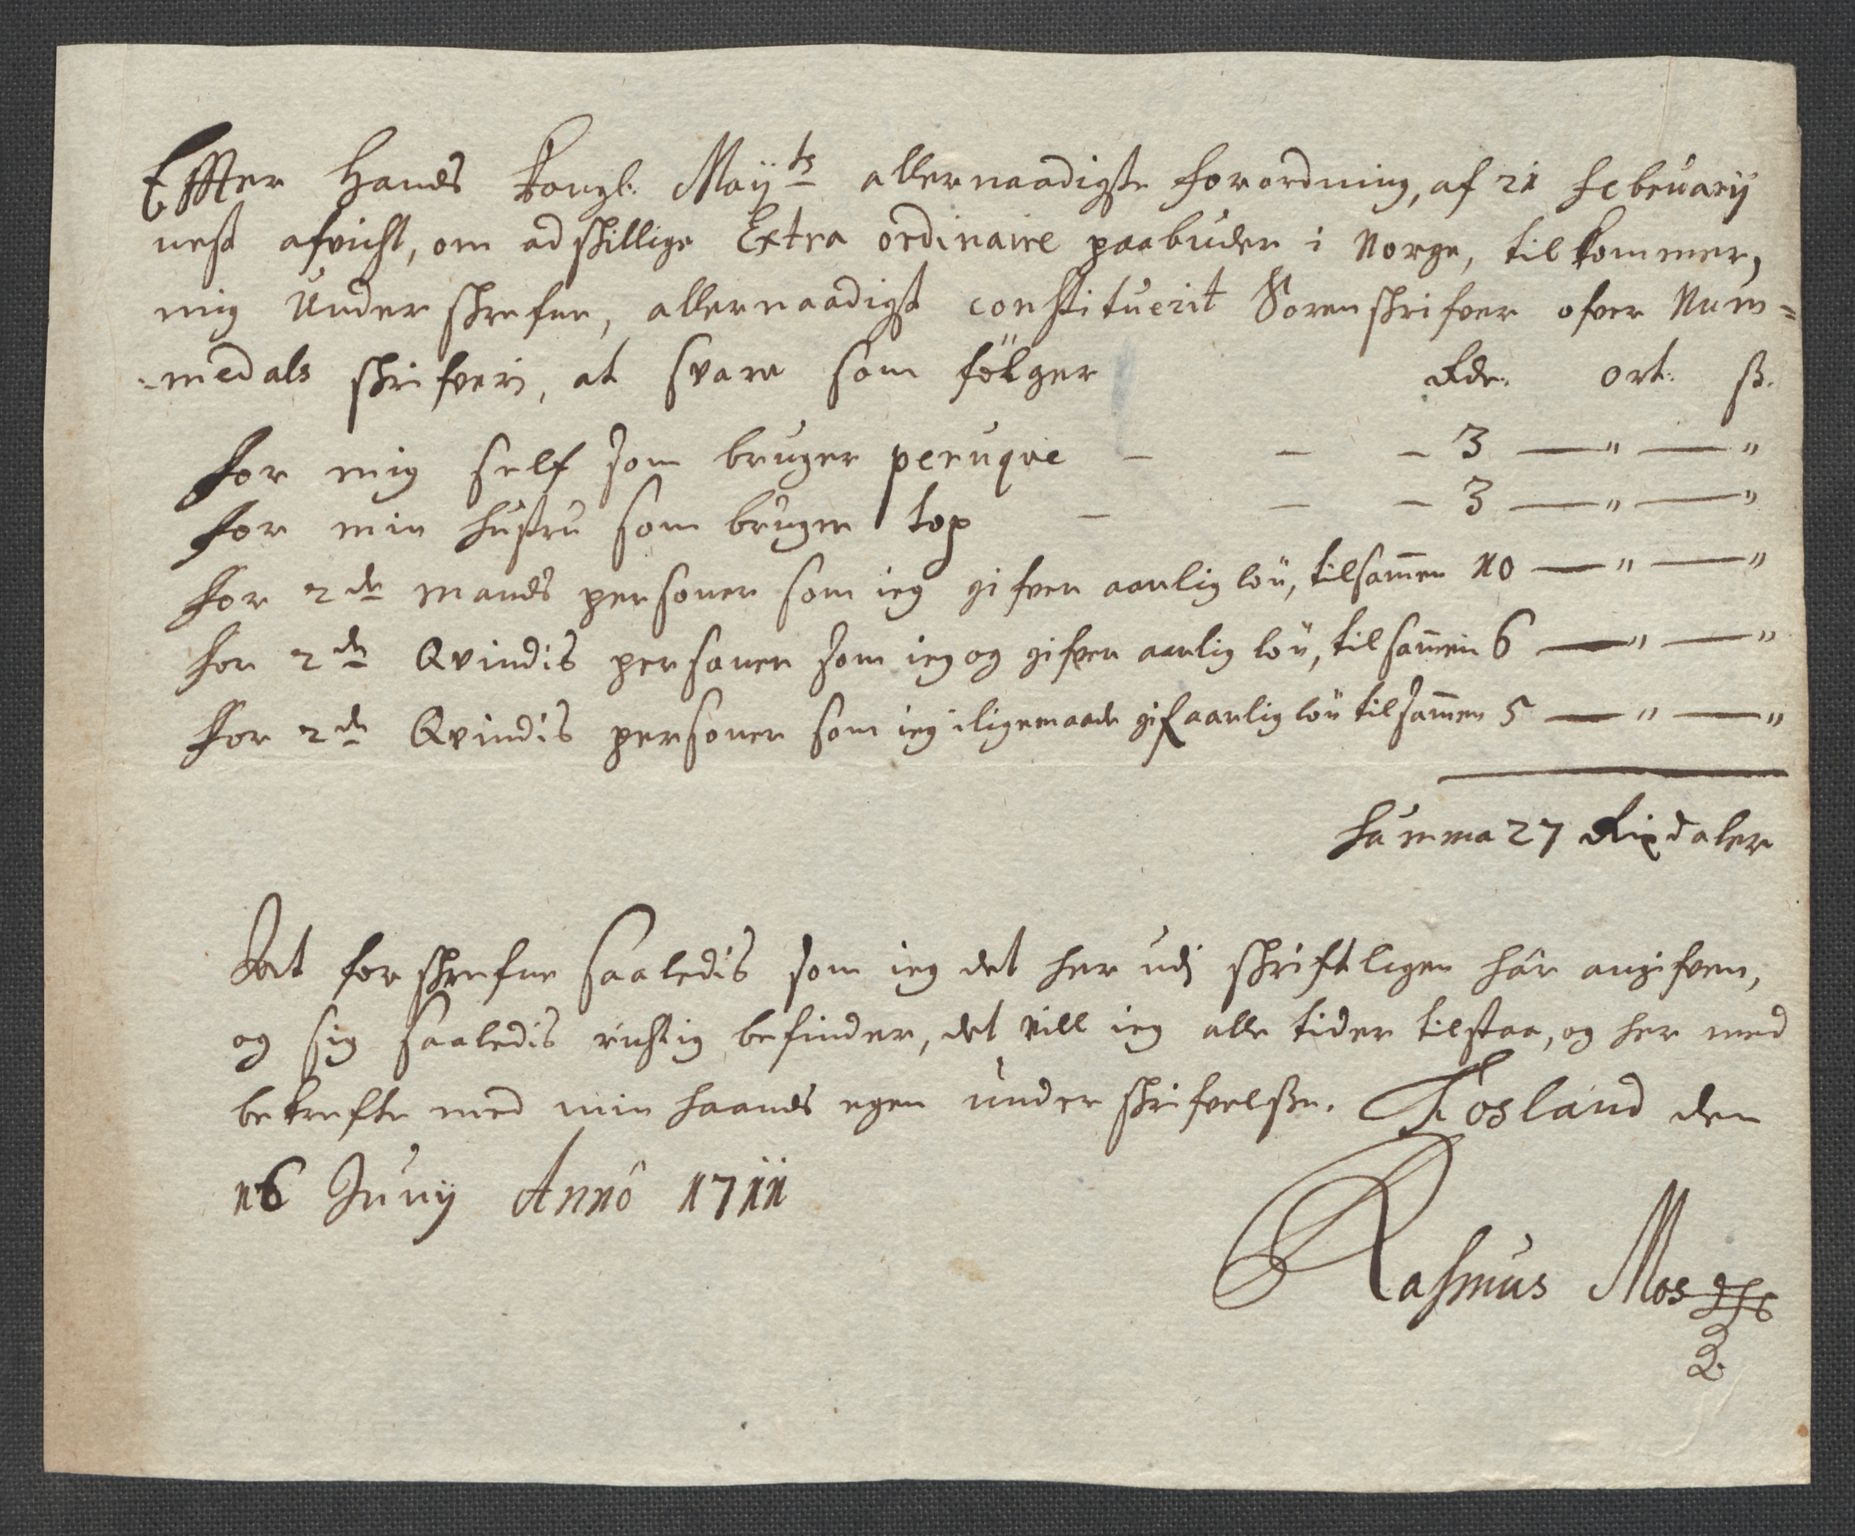 Effter Hands Kongl: Maÿts allernaadigste forordning, af 21 februarij
nest afvicht, om adskillige Extra ordinaire paabuder i Norge, tilkommer,
mig Underskrefne, allernaadigst constituerit Sorenskrifver ofver Num=
=medals skrifveri, at svare som fölger Rdr: ort: ß.
for mig self som bruger peruqve - - - 3 — " — "
for min hustru som bruger top - - - 3 — " — "
for 2de Mands personer som ieg gifver aarlig lön, tilsamen 10 — " — "
for 2de Qvindis personer som ieg og gifver aarlig lön, tilsamen 6 — " — "
for 2de Qvindis personer som ieg iligemaade gif aarlig lön tilsamen 5 — " — "
Summa 27 Rixdaler
At forskrefne saaledis som ieg det her udj skriftligen har angifven,
og sig saaledis richtig befinder, det vill ieg alle tider tilstaa, og her med
bekrefte med min haands egen underskrifvelße. Fosland den
16 Junij Annô 1711
Rasmus Mos